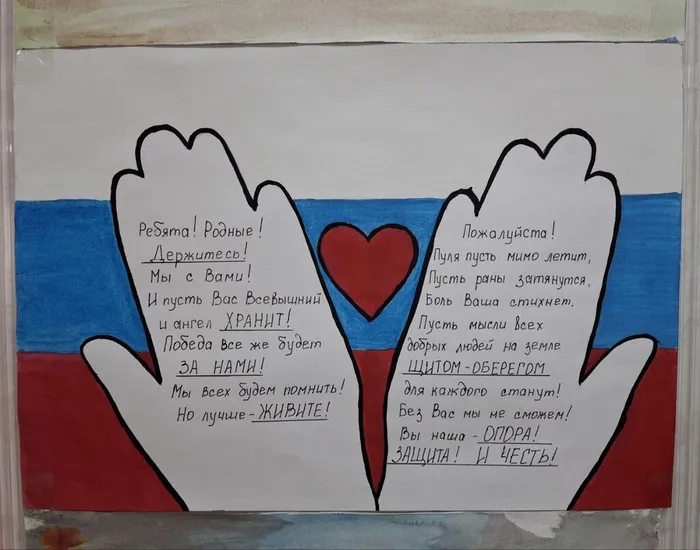 Ребята! Родные!
Держитесь!
Мы с Вами!
И пусть Вас Всевышний
и ангел ХРАНИТ!
Победа все же будет
ЗА НАМИ!
Мы всех будем помнить!
Но лучше - ЖИВИТЕ!
Пожалуйста!
Пуля пусть мимо летит,
Пусть раны затянутся,
Боль Ваша стихнет.
Пусть мысли всех
добрых людей на земле
ЩИТОМ-ОБЕРЕГОМ
для каждого станут!
Без Вас мы не сможем!
Вы наша - ОПОРА!
ЗАЩИТА! И ЧЕСТЬ!